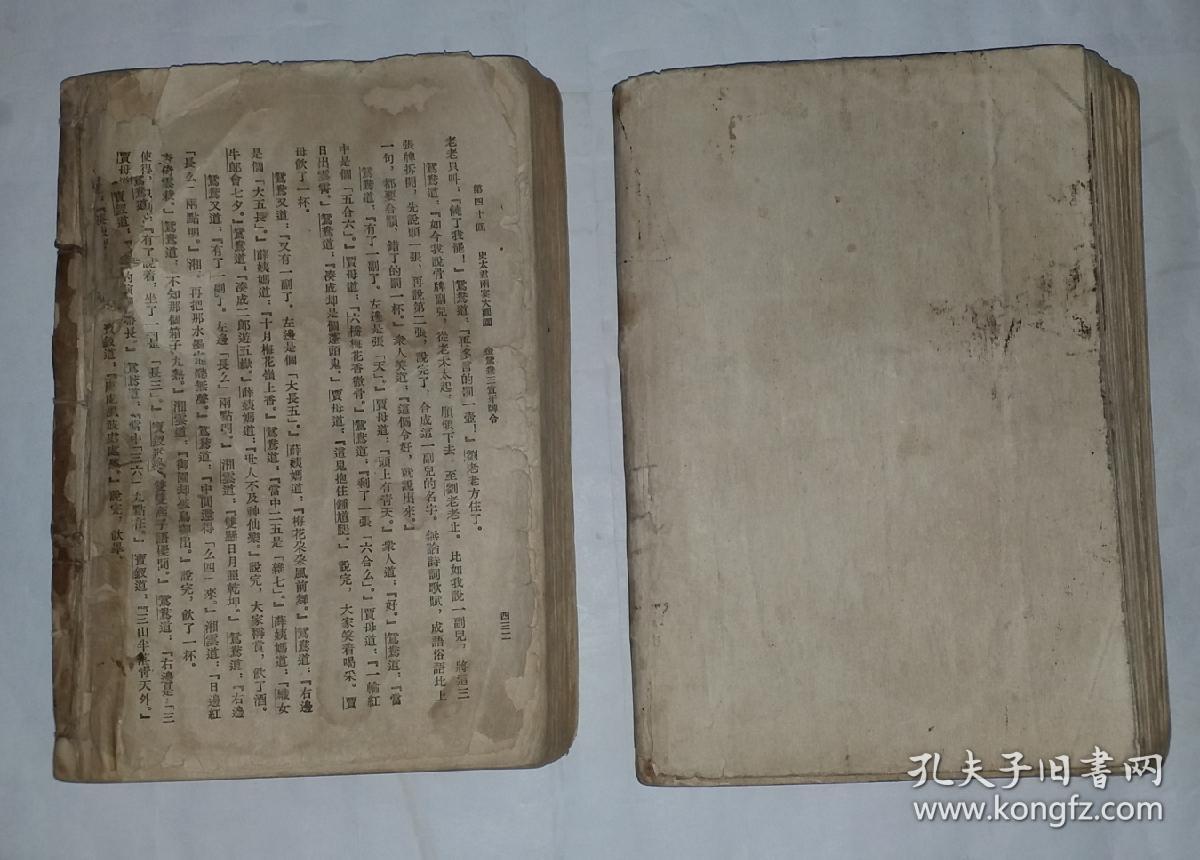 第四十回　史太君兩宴大觀園　金鴛鴦三宣牙牌令
四三二
老老只叫：『饒了我罷！』鴛鴦道：『再多言的罰一壺！』劉老老方住了。
鴛鴦道：『如今我說骨牌副兒，從老太太起，順領下去，至劉老老止。比如我說一副兒，將這三
張牌拆開，先說頭一張，再說第二張，說完了，合成這一副兒的名字，無論詩詞歌賦，成語俗語，比上
一句，都要合韻，錯了的罰一杯。』衆人笑道：『這個令好，就說出來。』
鴛鴦道：『有了一副了。左邊是張「天」。』賈母道：『頭上有青天。』衆人道：『好。』鴛鴦道：『當
中是個「五合六」。』賈母道：『六橋梅花香徹骨。』鴛鴦道：『剩了一張「六合么」。』賈母道：『一輪紅
日出雲霄。』鴛鴦道：『湊成却是個蓬頭鬼。』賈母道：『這鬼抱住鍾馗腿。』說完，大家笑着喝采。賈
母飲了一杯。
鴛鴦又道：『又有一副了。左邊是個「大長五」。』薛姨媽道：『梅花朵朵風前舞。』鴛鴦道：『右邊
是個「大五長」。』薛姨媽道：『十月梅花嶺上香。』鴛鴦道：『當中二五是「雜七」。』薛姨媽道：『織女
牛郎會七夕。』鴛鴦道：『湊成二郎遊五嶽。』薛姨媽道：『世人不及神仙樂。』說完，大家稱賞，飲了酒。
鴛鴦又道：『有了一副了。左邊「長么」兩點明。』湘雲道：『雙懸日月照乾坤。』鴛鴦道：『右邊
「長么」兩點明。』湘 再把那水 聽無聲。』鴛鴦道：『中間還得「么四」來。』湘雲道：『日邊紅
雲栽。』鴛鴦道： 不知那個箱子九熟。』湘雲道：『御園却被鳥啣出。』說完，飲了一杯。
鴛鴦道：『有了 說着，坐了 是「長三」。』寶釵 雙雙燕子語樑間。』鴛鴦道：『右邊是「三
長」。』鴛鴦道：『當中「三六」九點在。』寶釵道：『三山半落青天外。』
賈母 寶釵道： 說完，飲畢。
孔夫子旧書网
www.kongfz.com